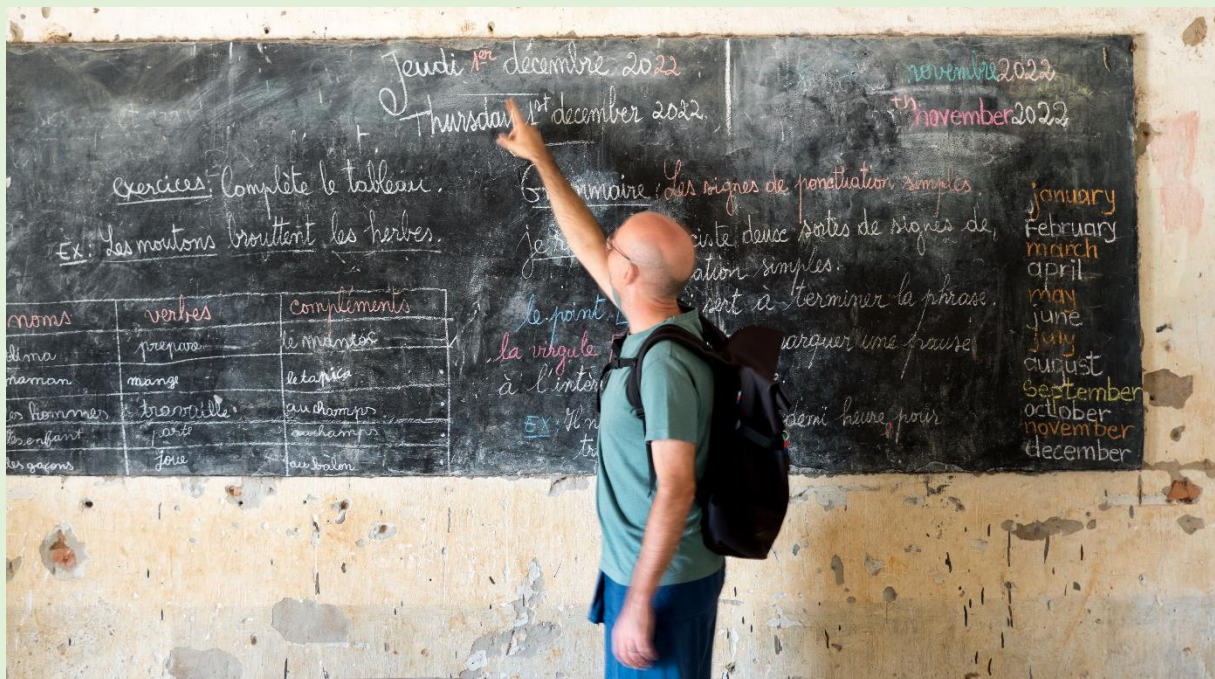 Jeudi 1er décembre 2022
Thursday 1st december 2022
novembre 2022
th november 2022
exercices: Complète le tableau.
EX: Les moutons brouttent les herbes.
noms verbes compléments
prepare le mantoc
maman mange le tapica
les hommes travaille au champs
les enfant parte au champs
les gaçons Joue au balon
Grammaire: Les signes de ponctuation simples.
je ciste deux sortes de signes de
ation simples.
le point sert à terminer la phrase.
la virgule marquer une pause
à l'inté
EX: Il demi heure pour
january
february
march
april
may
june
july
august
september
october
november
december